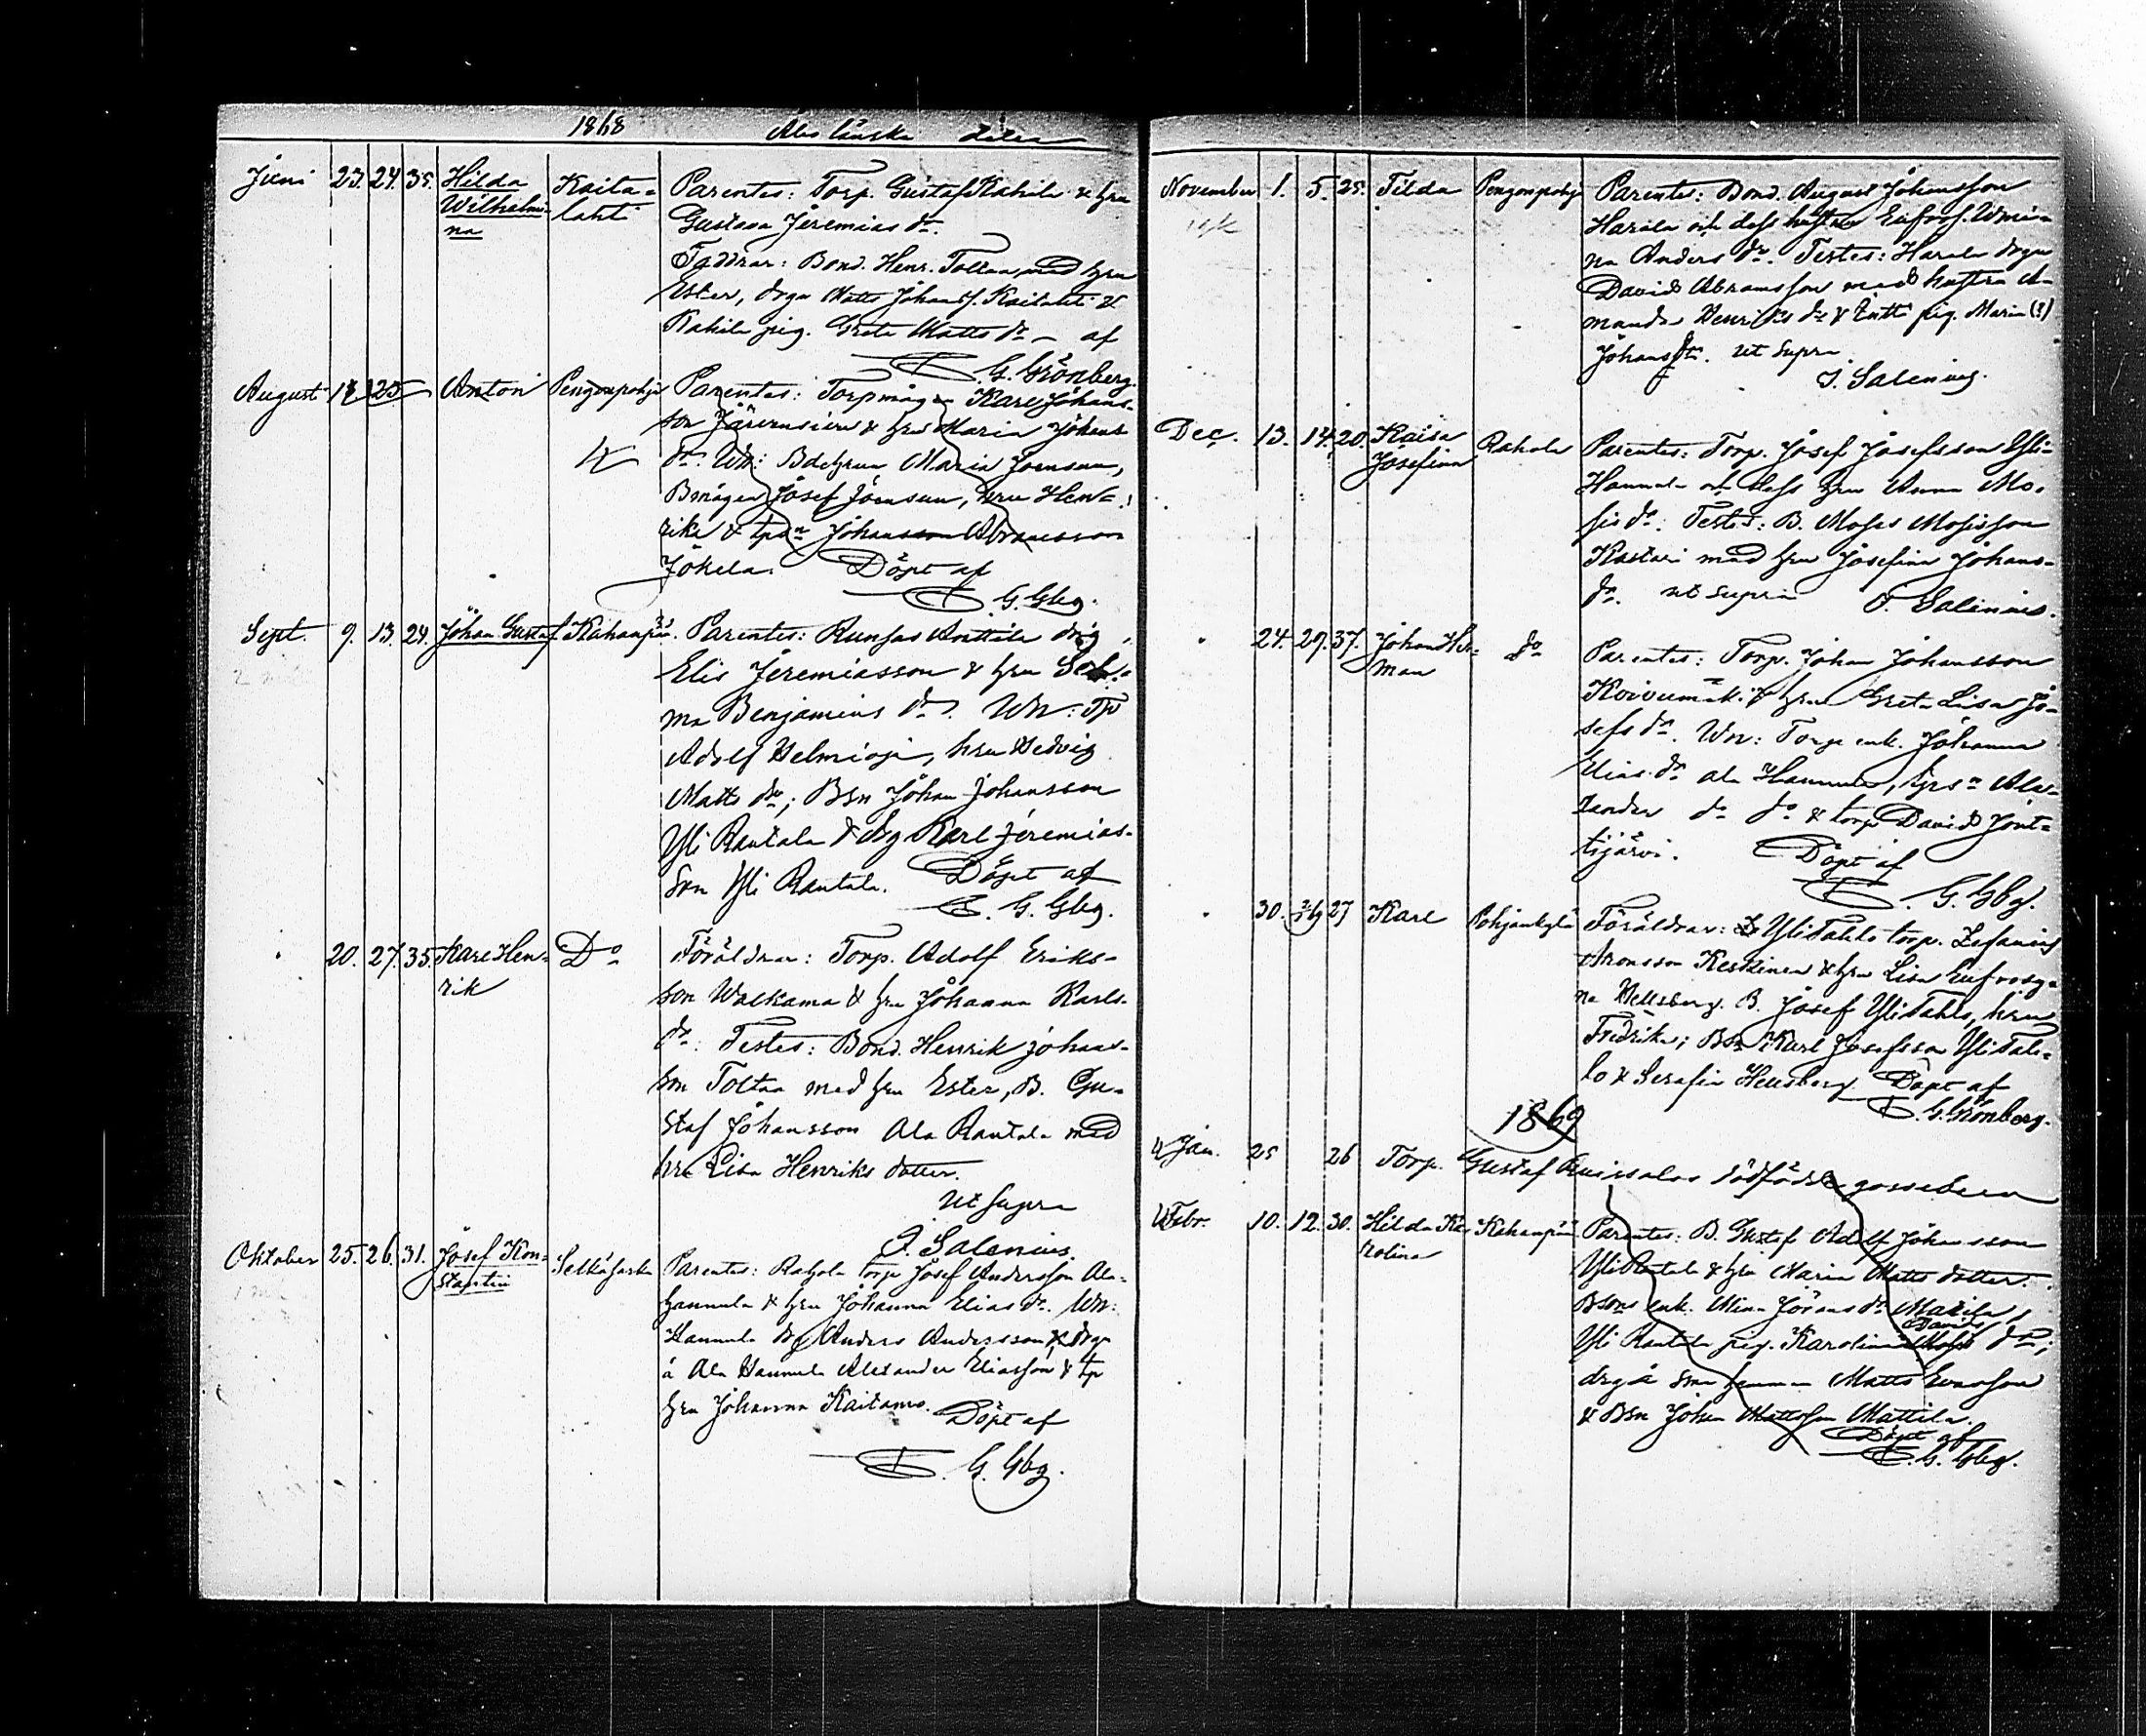 1868 Åbo länska delen
Juni 23. 24. 35. Hilda Kaita- Parentes: Torp. Gustaf Kahila & hru
Wilhelmi- lahti Gustava Jeremias dr.
na
Faddrar: Bond. Henr. Toltaa, med hru
Ester, drgn Matts Johanss. Kaitalahti &
Kahila pig. Greta Matts dr af
G. Grönberg.
August 25 Anton Pengonpohja Parentes: Torpmågen Karl Johans-
son & hru Maria Johans
dr. Wn: Bdehrun Maria Joensuu,
Bmågen Josef Joensuu, hru Hen-
rika & Johansson Abramsson
Jokela. Döpt af
G. Gbg.
Sept. 9. 13. 24. Johan Gustaf Kahanpää. Parentes: Anttila drg
Elis Jeremiasson & hru Sel-
ma Benjamins dr. Wn: Tp
Adolf Helminoja, hru Hedvig
Matts dr; Bsn Johan Johansson
Yli Rantala & drg Karl Jeremias-
son Yli Rantala. Döpt af
G. Gbg.
20. 27. 35. Karl Hen- Do Föräldrar: Torp. Adolf Eriks-
rik son Walkama & hru Johanna Karls-
dr. Testes: Bond. Henrik Johans-
son Toltaa med hru Ester, B. Gu-
staf Johansson Ala Rantala med
hru Lisa Henriks dotter.
Ut supra
J. Salenius.
Oktober 25. 26. 31. Josef Kon- Selkäsarka Parentes: Rahola torp Josef Andersson Ala-
stantin hannula & hru Johanna Elias dr. Wn:
Hannula drg Anders Andersson, & drgn
å Ala Hannula Alexander Eliasson & tp
hru Johanna Kaitamo. Döpt af
G. Gbg.
November 1. 5. 25. Tilda Pengonpohja Parentes: Bond. August Johansson
Harala och dess hustru Eufros. Wilmi-
na Anders dr. Testes: Harala drgn
David Abramsson med hustru A-
manda Henriks dr & Antti pig. Maria (?)
Johans dr. ut supra
J. Salenius.
Dec. 13. 14. 20. Kaisa Rahola Parentes: Torp. Josef Josefsson Yli-
Josefina Hannula och dess hru Anna Mo-
sis dr. Testes: B. Moses Mosisson
Kastari med hru Josefina Johans-
dr. ut supra J. Salenius.
24. 27. 37. Johan Her- do Parentes: Torp. Johan Johansson
man Koivumäki & hru Greta Lisa Jo-
sefs dr. Wn: Torp enk. Johanna
Elias dr Ala Hannula, tprsn Alex-
ander do do & torp David Jont-
tijärvi. Döpt af
G. Gbg.
30. 27 Karl Pohjankylä Föräldrar: Yli Tahlo torp. Zefanias
Aronsson Keskinen & hru Lisa Eufrosy-
na Hellsberg. B. Josef Yli Tahlo, hru
Fredrika; Bsn Karl Josefsson Yli Tah-
lo & Serafia Hellsberg. Döpt af
G. Grönberg.
1869
Jan. 25 26 Torp. Gustaf dödfödde gossebarn
Febr. 10. 12. 30. Hilda Ka- Kahanpää Parentes: B. Gustaf Adolf Johansson
rolina Yli Rantala & hru Maria Matts dotter.
Bsons enk. Mina Johans dr Mattila,
Davids
Yli Rantala pig. Karolina dr;
drg å Matts
& Bsn Johan Mattsson Mattila.
Döpt af
G. Gbg.